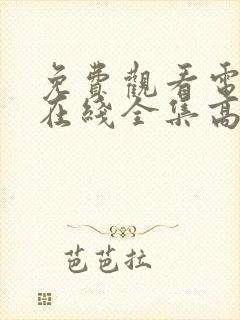 免費觀看電
在綫全集高
芭芭拉